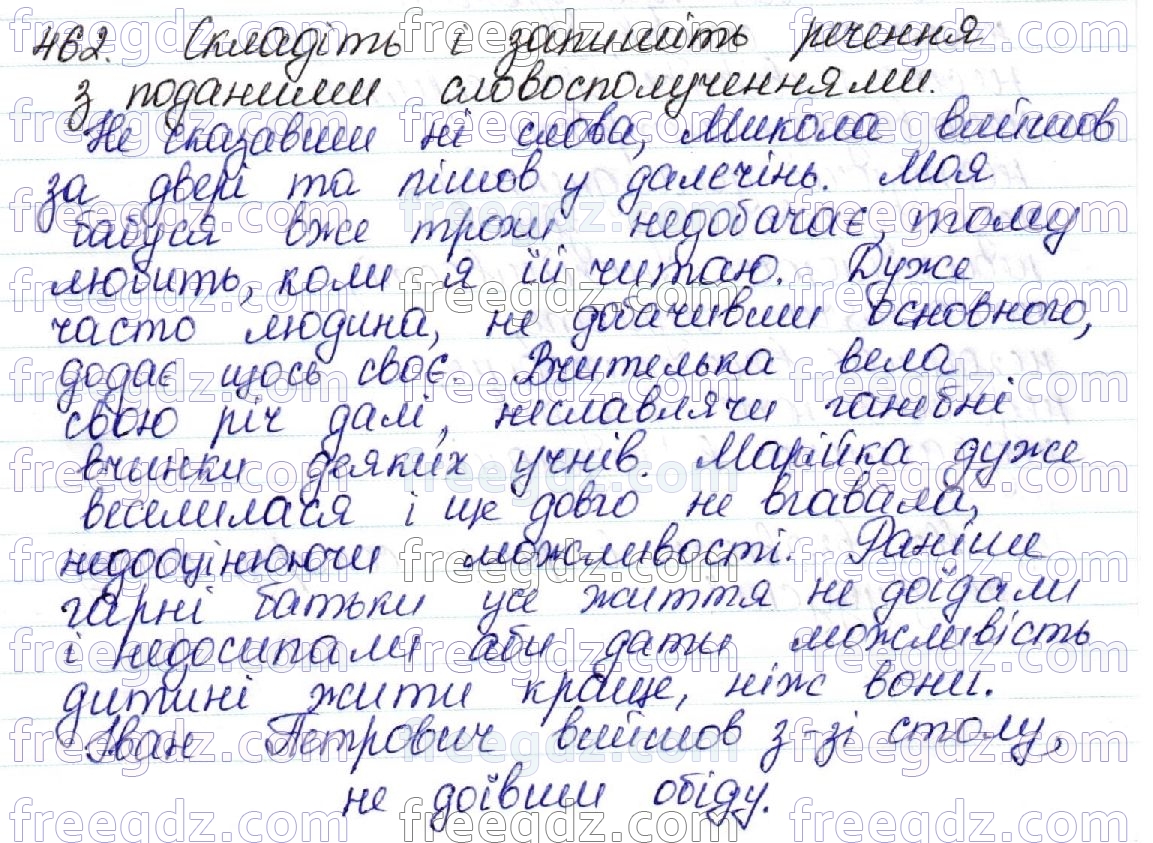 462. Складіть і запишіть речення
з поданими словосполученнями.
Не сказавши ні слова, Микола вийшов
за двері та пішов у далечінь. Моя
бабуся вже трохи недобачає, тому
любить, коли я їй читаю. Дуже
часто людина, не добачивши основного,
додає щось своє. Вчителька вела
свою річ далі, неславлячи ганебні
вчинки деяких учнів. Марійка дуже
веселилася і ще довго не вгавала,
недооцінюючи можливості. Раніше
гарні батьки усе життя не доїдали
і недосипали аби дати можливість
дитині жити краще, ніж вони.
Іван Петрович вийшов з-зі столу,
не доївши обіду.
freegdz.com